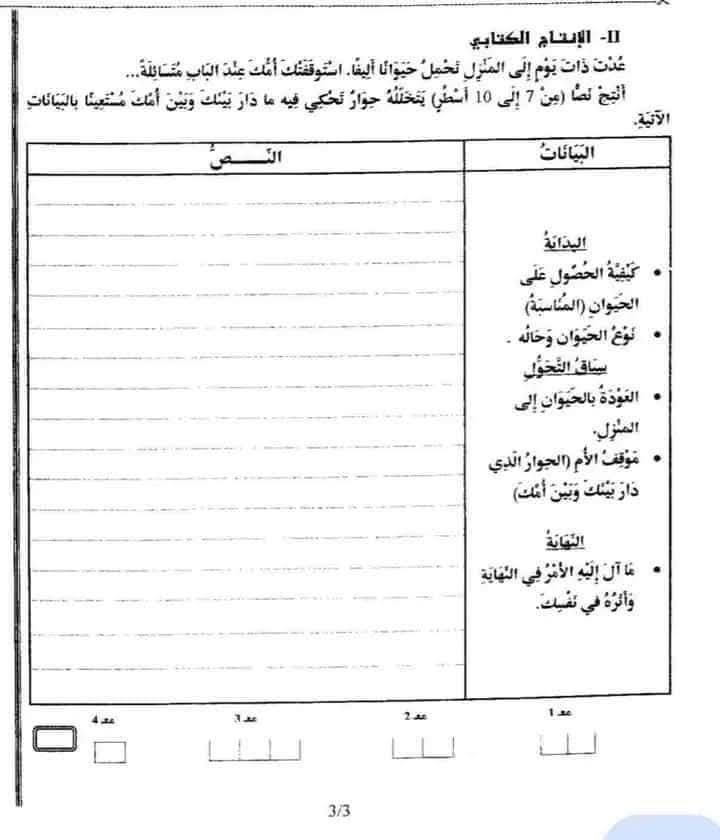 II- الإنتاج الكتابي
عُدْتَ ذَاتَ يَوْمٍ إِلَى المَنْزِلِ تَحْمِلُ حَيَوَانًا أَلِيفًا. اسْتَوقَفَتْكَ أُمُّكَ عِنْدَ البَابِ مُتَسَائِلَةً...
أَنْتِجْ نَصًّا (مِنْ 7 إِلَى 10 أَسْطُرٍ) يَتَخَلَّلُهُ حِوَارٌ تَحْكِي فِيهِ ما دَارَ بَيْنَكَ وَبَيْنَ أُمِّكَ مُسْتَعِينًا بالبَيَانَاتِ
الآتِيَةِ.
البَيَانَاتُ
النَّـــــصُّ
البِدَايَةُ
• كَيْفِيَّةُ الحُصُولِ عَلَى
الحَيَوانِ (المُنَاسَبَةُ)
• نَوْعُ الحَيَوَانِ وَحَالُه .
سِيَاقُ التَّحَوُّلِ
• العَوْدَةُ بالحَيَوَانِ إِلى
المَنْزِلِ.
• مَوْقِفُ الأُمِ (الحِوارُ الَذِي
دَارَ بَيْنَكَ وَبَيْنَ أُمِّكَ)
النِّهَايَةُ
• مَا آلَ إِلَيْهِ الأَمْرُ فِي النِّهَايَةِ
وَأَثَرُهُ في نَفْسِكَ.
معـ 1
معـ 2
معـ 3
معـ 4
3/3